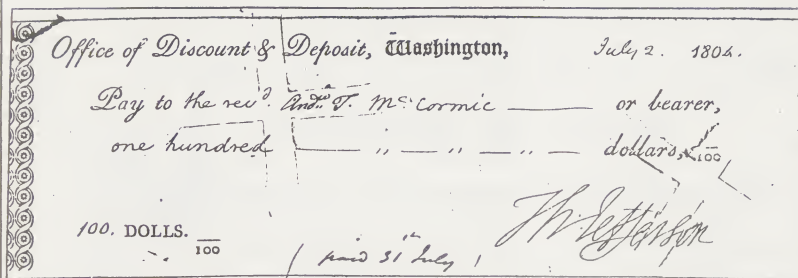 Office of Discount & Deposit, Washington, July 2. 1804.
Pay to the revd. Andw. T. McCormic ——— or bearer,
one hundred ——— „ — „ — „ — dollars, /100
100. DOLLS. /100
Th: Jefferson
paid 31th July